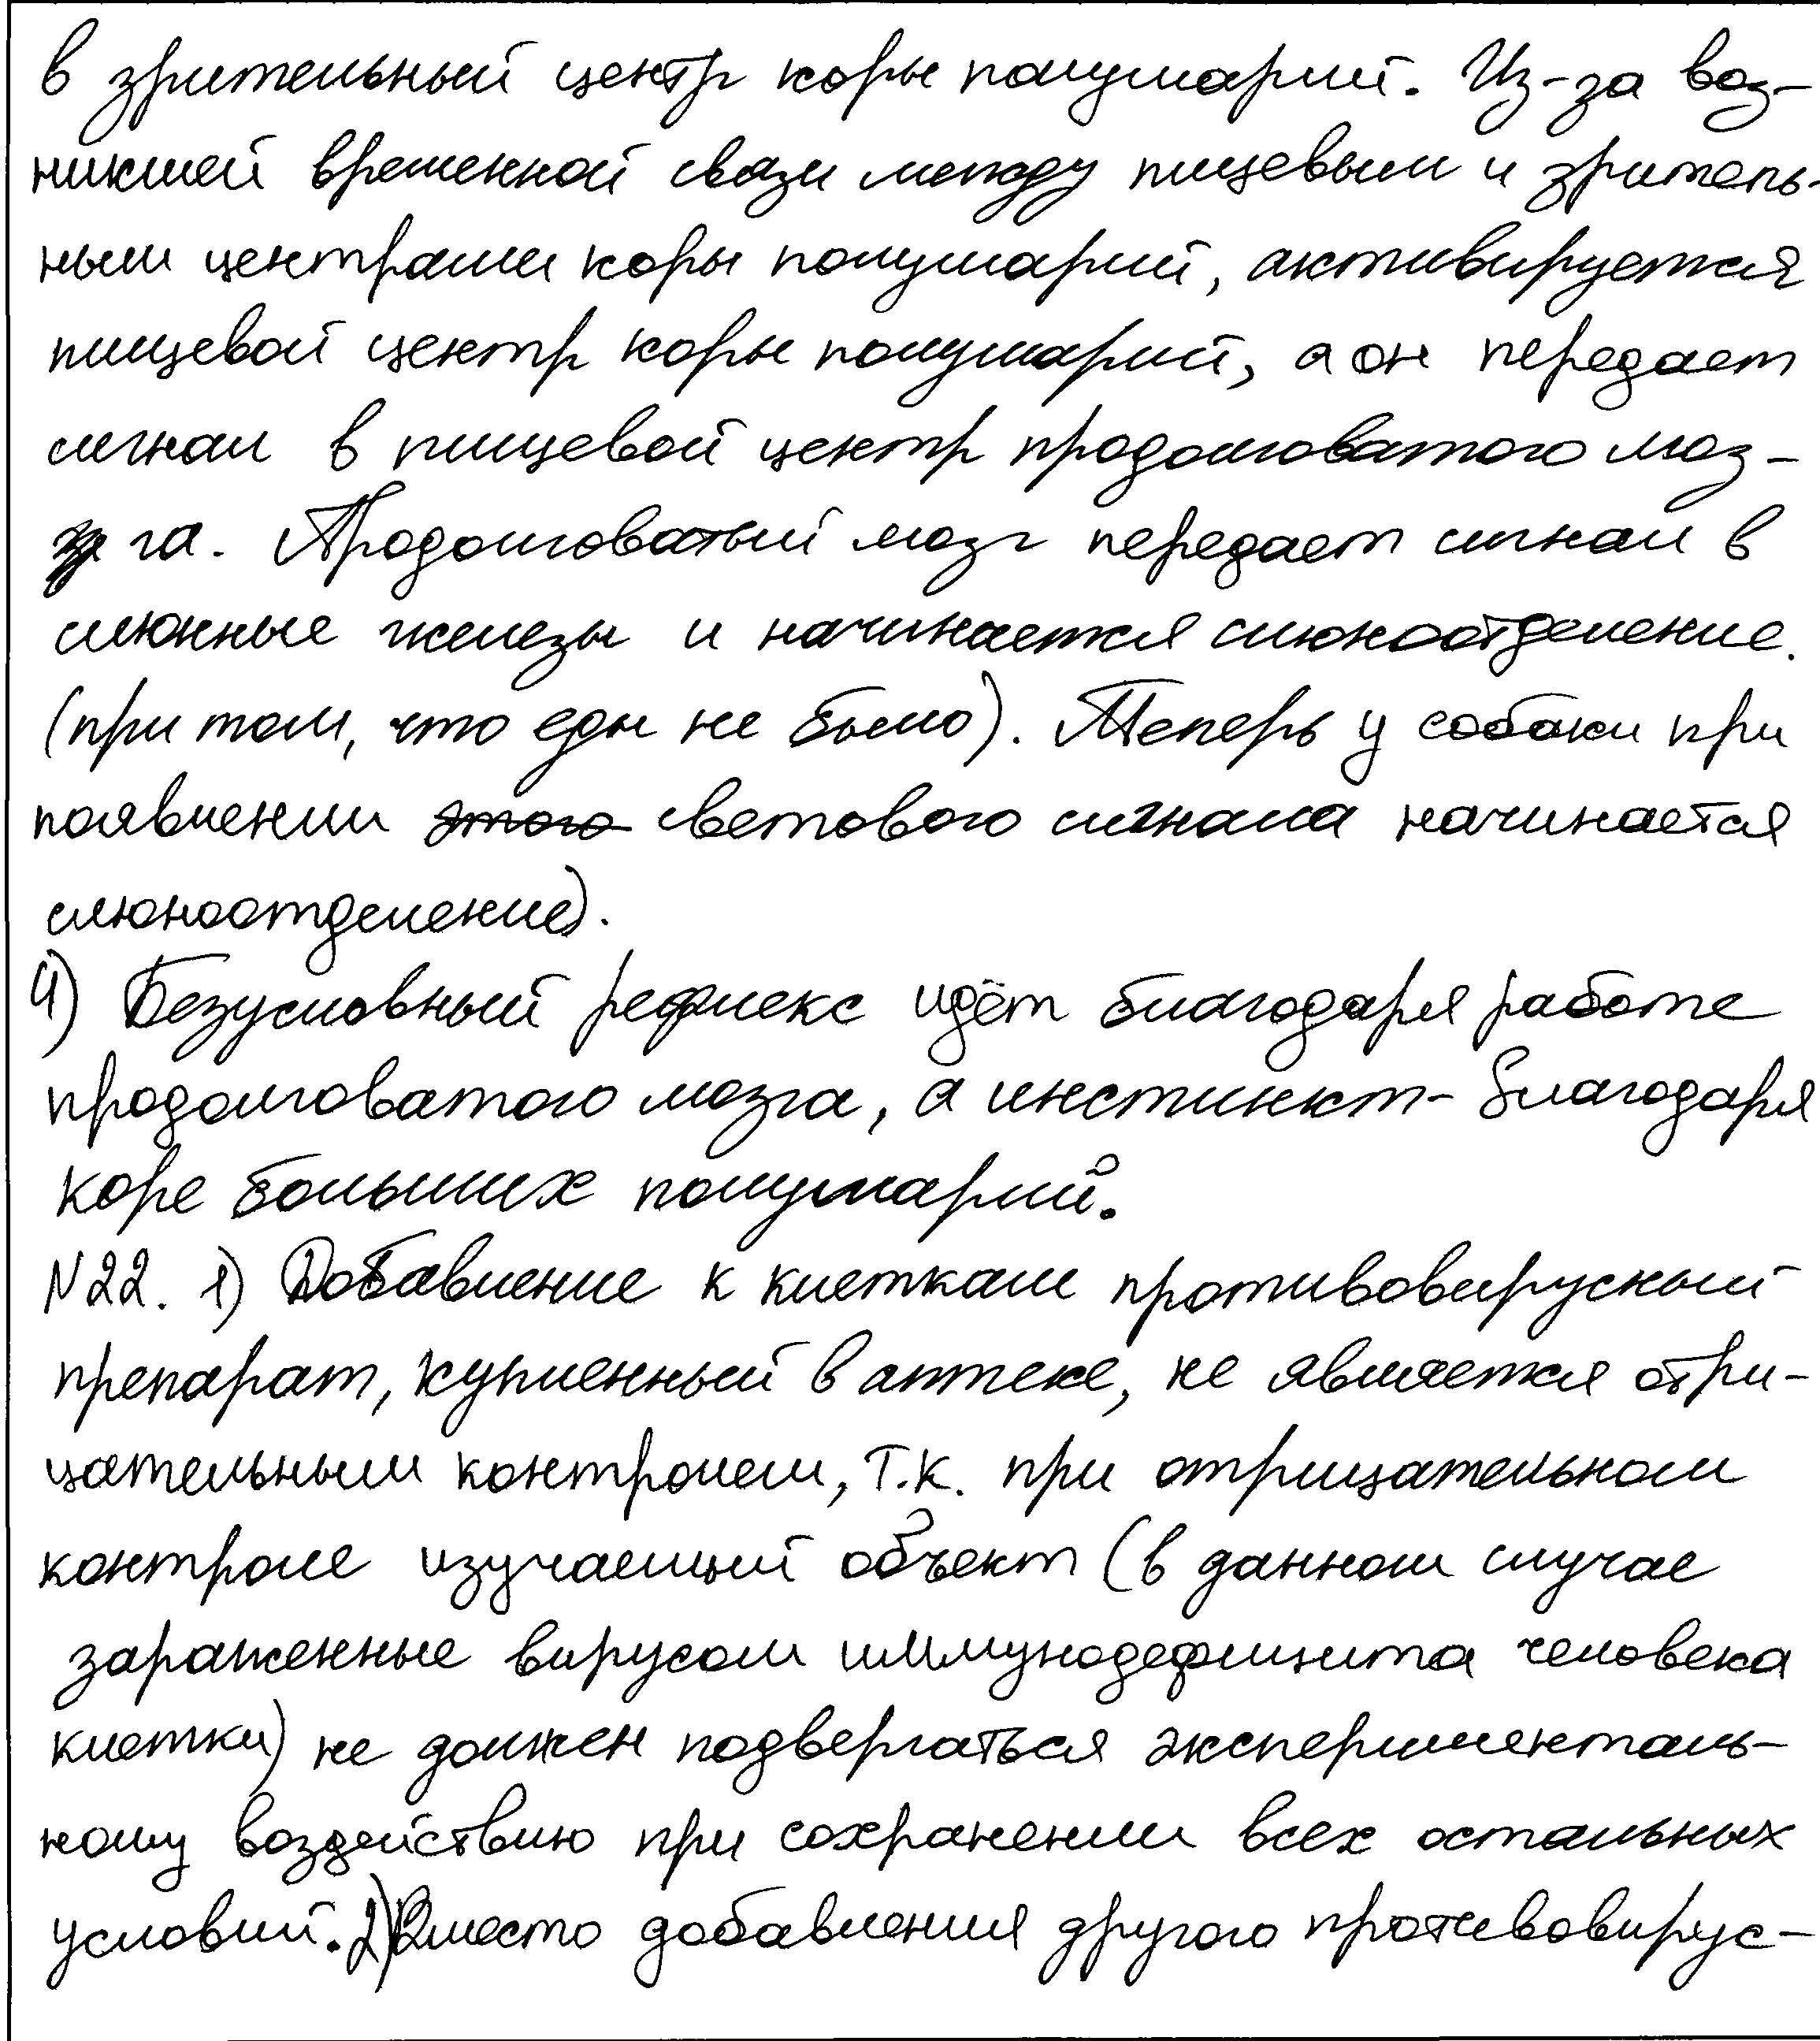 в зрительный центр коры полушарий. Из-за воз-
никшей временной связи между пищевым и зритель-
ным центрами коры полушарий, активируется
пищевой центр коры полушарий, а он передает
сигнал в пищевой центр продолговатого моз-
га. Продолговатый мозг передает сигнал в
слюнные железы и начинается слюноотделение.
(при том, что еды не было). Теперь у собаки при
появлении этого светового сигнала начинается
слюноотделение).
4) Безусловный рефлекс идёт благодаря работе
продолговатого мозга, а инстинкт - благодаря
коре больших полушарий.
N22. 1) Добавление к клеткам противовирусный
препарат, купленный в аптеке, не является отри-
цательным контролем, т.к. при отрицательном
контроле изучаемый объект (в данном случае
зараженные вирусом иммунодефицита человека
клетки) не должен подвергаться эксперименталь-
ному воздействию при сохранении всех остальных
условий. 2) Вместо добавления другого противовирус-